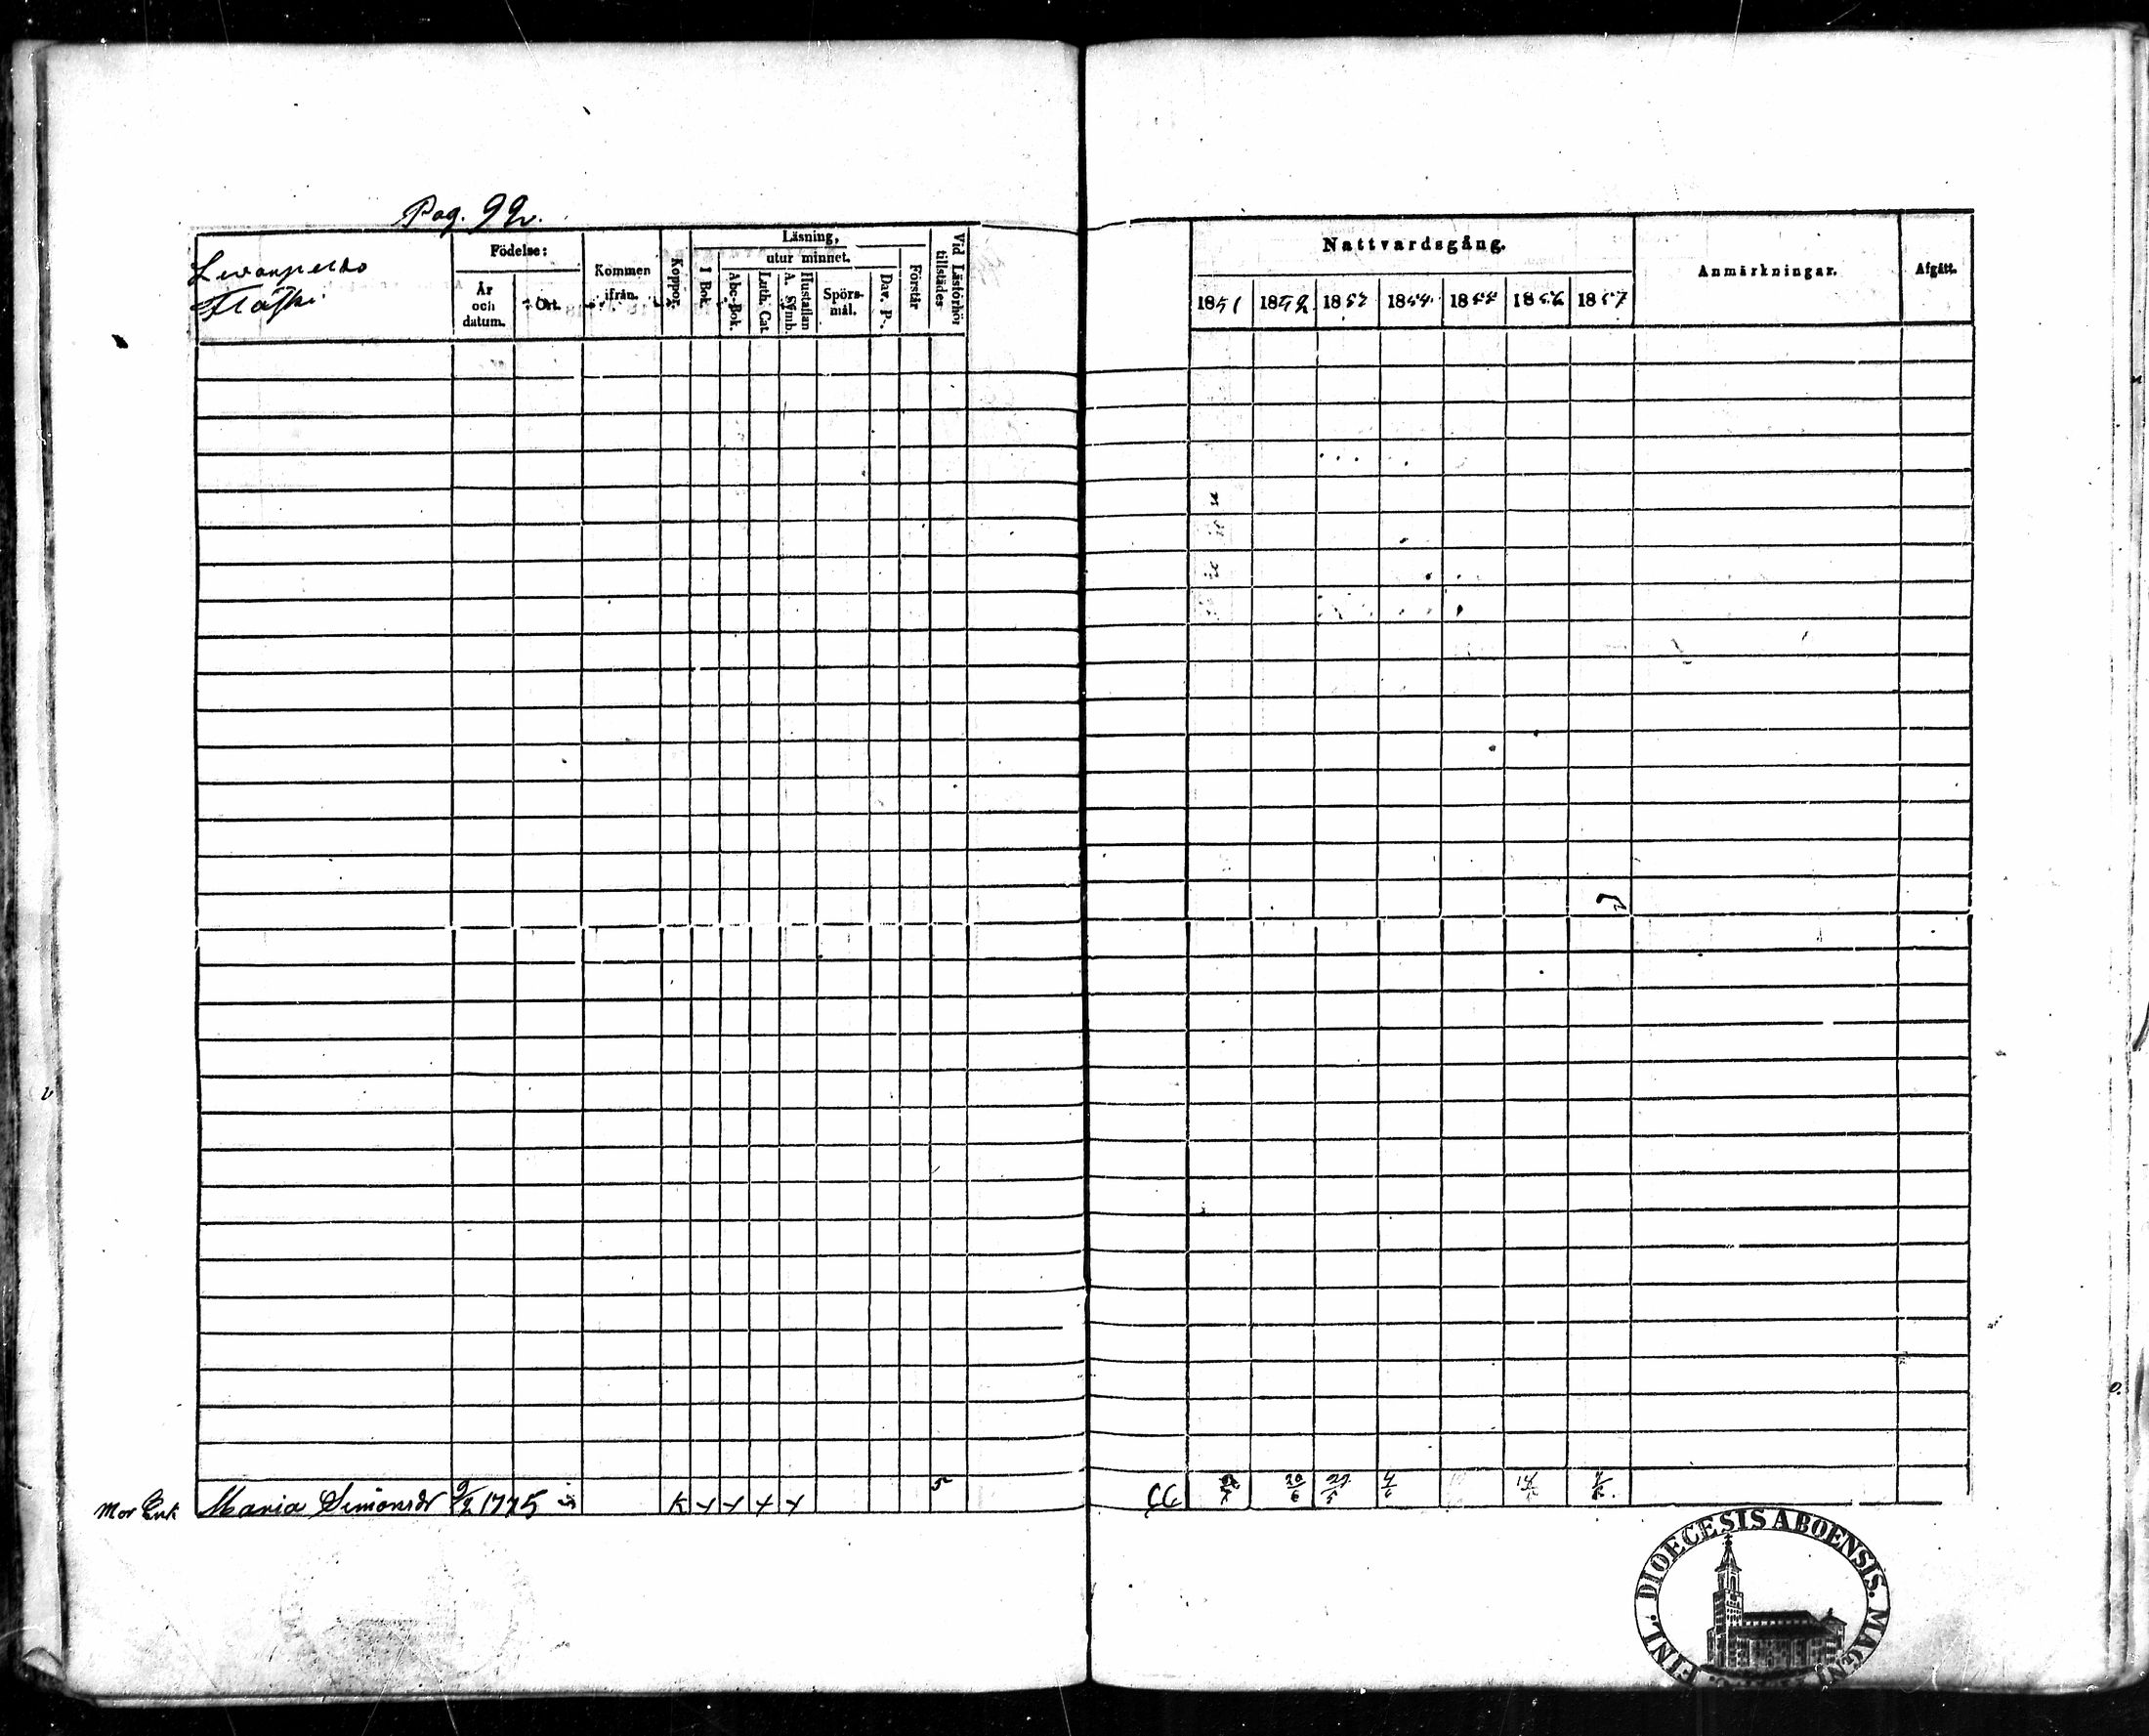 Pag. 92.
Födelse:
År och datum.
Ort.
Kommen ifrån.
Koppor.
Läsning,
utur minnet.
I Bok.
Abc-Bok.
Luth. Cat.
A. Symb.
Hustaflan
Spörsmål.
Dav. P.
Förstår
Vid Läsförhör tillstädes
Nattvardsgång.
1851 1852 1853 1854 1855 1856 1857
Anmärkningar.
Afgått.
Mor Enk Maria Simonsdr 9/2 1775 K 5 20/6 4/6
FINL. DIOECESIS ABOENSIS. MAGNI